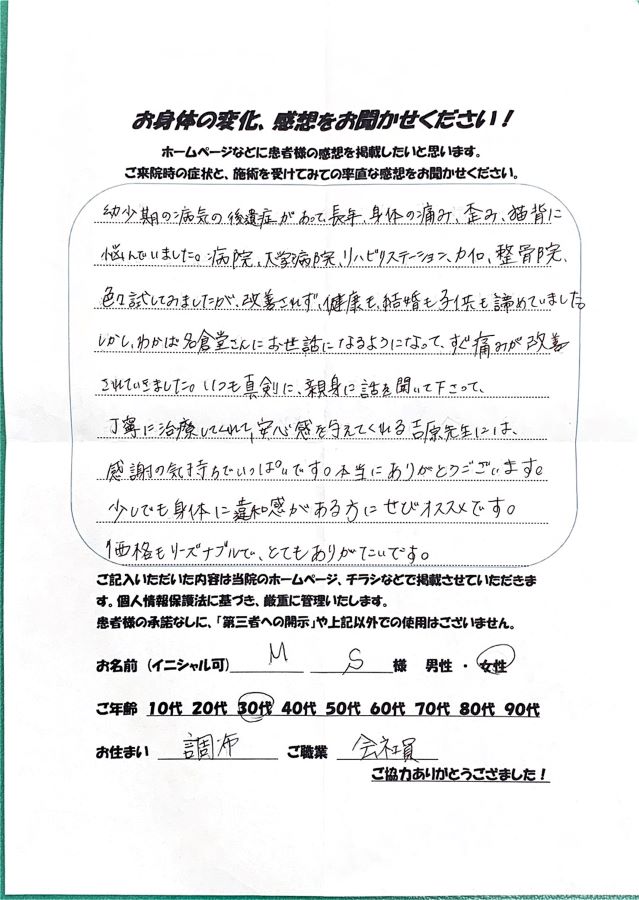 お身体の変化、感想をお聞かせください！
ホームページなどに患者様の感想を掲載したいと思います。
ご来院時の症状と、施術を受けてみての率直な感想をお聞かせください。
幼少期の病気の後遺症があって、長年、身体の痛み、歪み、猫背に
悩んでいました。病院、大学病院、リハビリステーション、カイロ、整骨院、
色々試してみましたが、改善されず、健康も、結婚も子供も諦めていました
しかし、わかば名倉堂さんにお世話になるようになって、すぐ痛みが改善
されていきました。いつも真剣に、親身に話を聞いて下さって、
丁寧に治療してくれて、安心感を与えてくれる吉原先生には、
感謝の気持ちでいっぱいです。本当にありがとうございます。
少しでも身体に違和感がある方にぜひオススメです。
価格もリーズナブルで、とてもありがたいです。
ご記入いただいた内容は当院のホームページ、チラシなどで掲載させていただきま
す。個人情報保護法に基づき、厳重に管理いたします。
患者様の承諾なしに、「第三者への開示」や上記以外での使用はございません。
お名前（イニシャル可） M S 様 男性・女性
ご年齢 10代 20代 30代 40代 50代 60代 70代 80代 90代
お住まい 調布 ご職業 会社員
ご協力ありがとうござました！